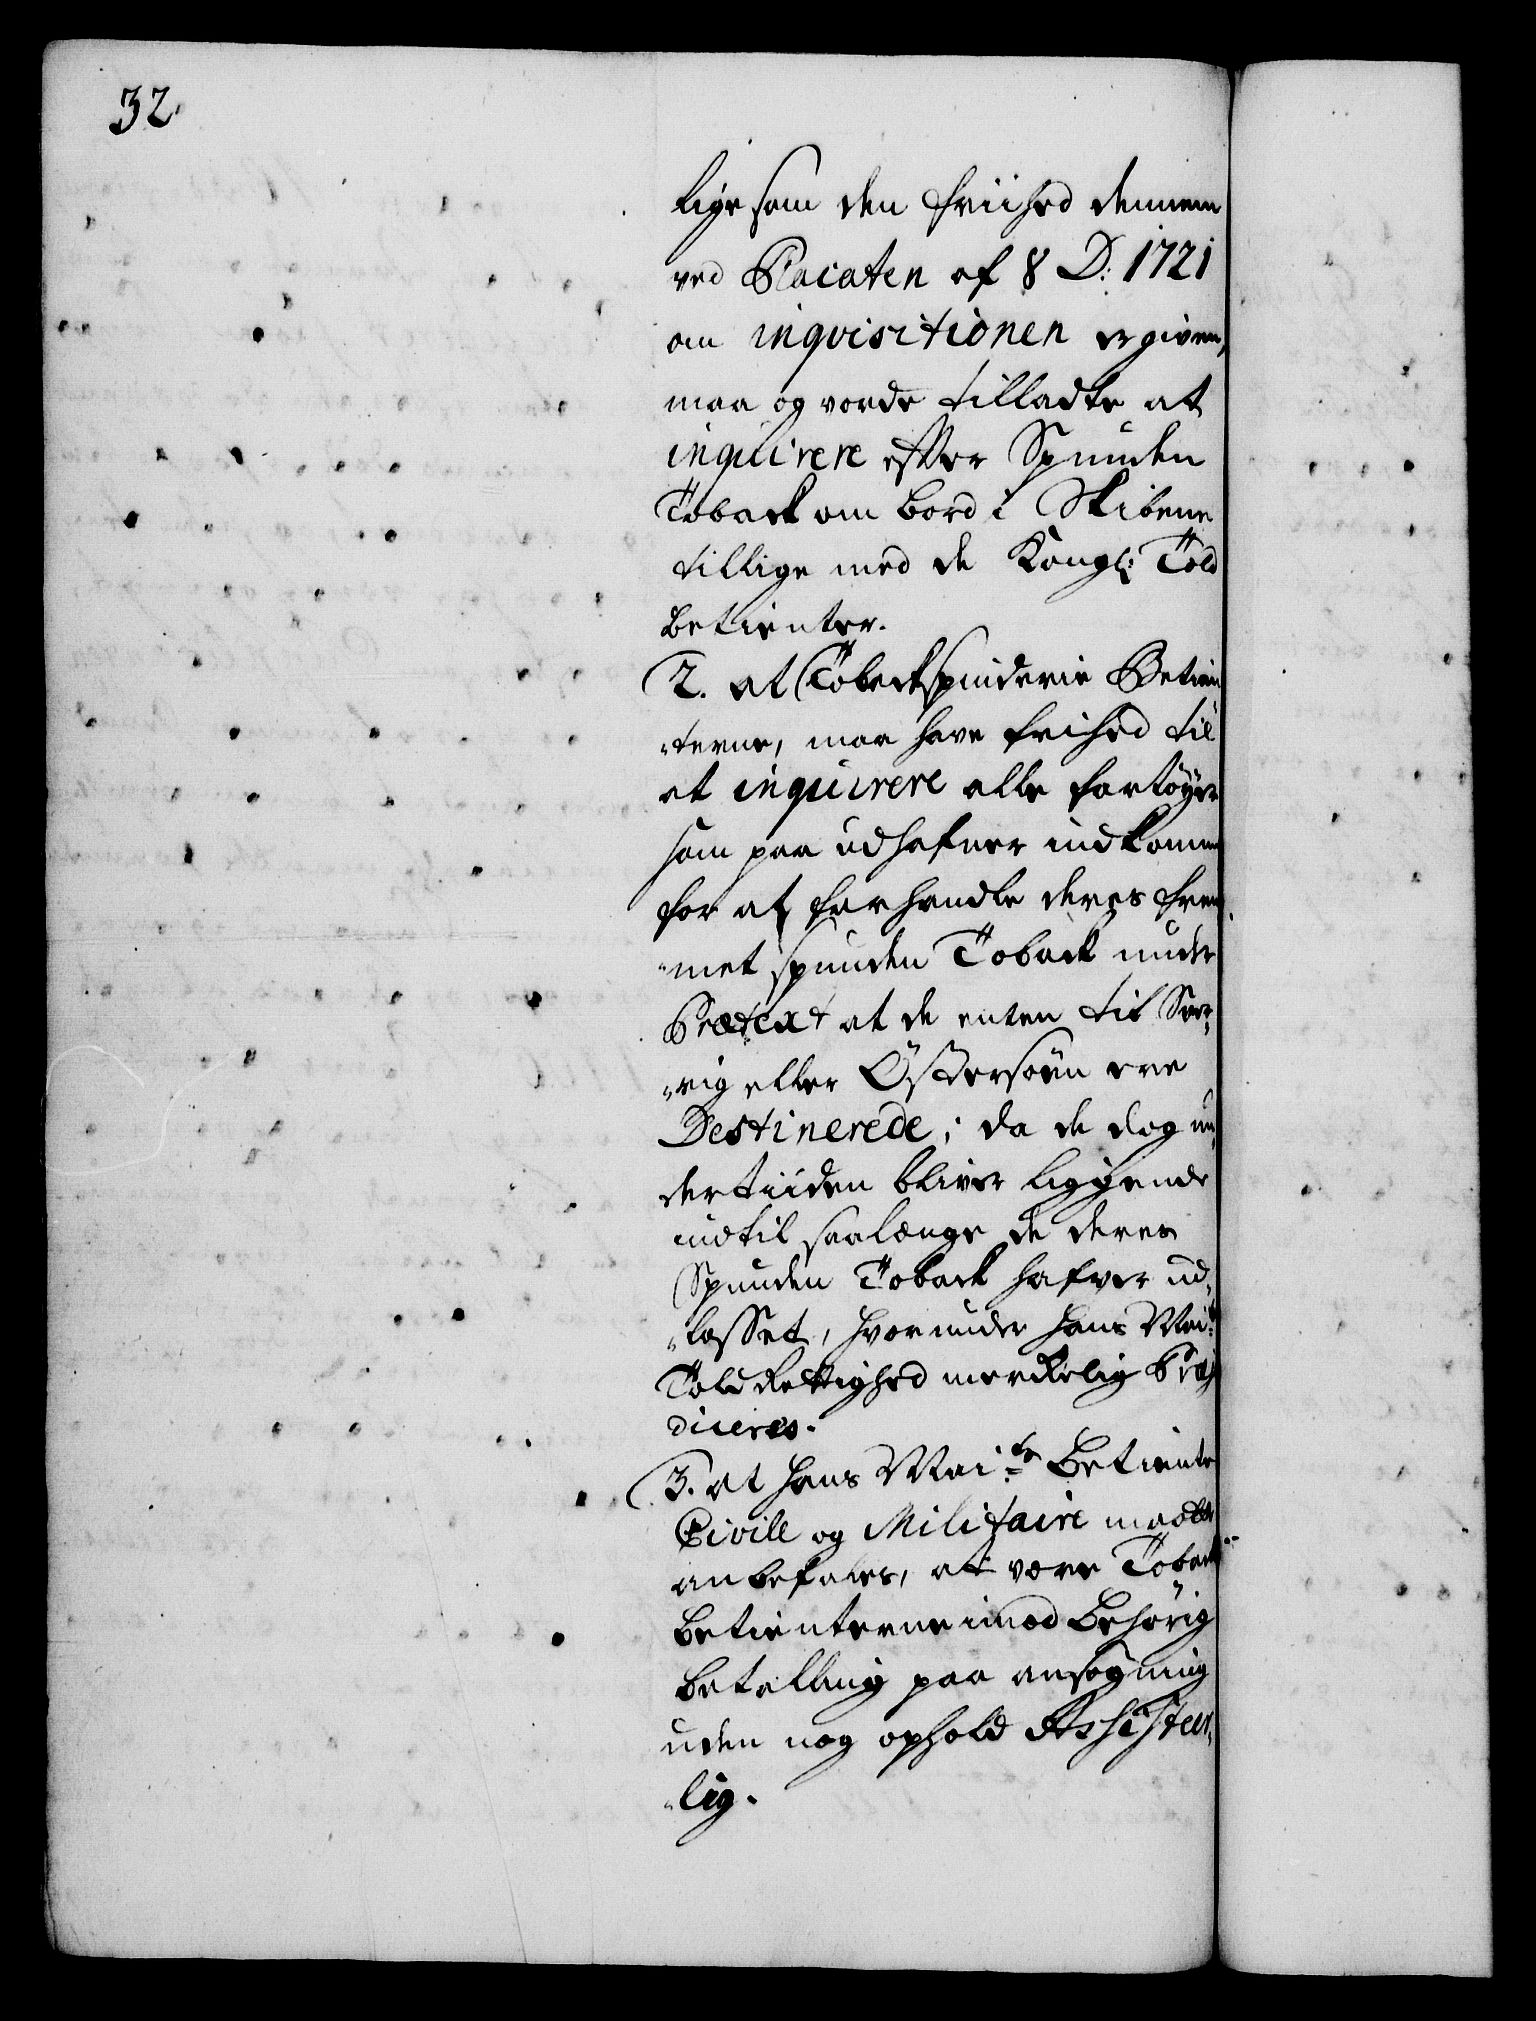 32.
lige som den friihed dennem
ved Placaten af 8 D: 1721
om inqvisitionen er given,
maa og vorde tilladte at
inquirere efter Spunden
Toback om bord i Skibene
tillige med de Kongl: Told
betienter.
2. at Tobackspinderie Betien
"terne, maa have frihed til
at inquirere alle fartøyer
som paa udhafner indkomme
for at forhandle deres frem
"met spunden Toback under
Prætext at de enten til Sver,
"rig eller Østersøen ere
Destinerede; da de dog un,
dertiiden bliver liggende
indtil saalænge de deres
Spunden Toback hafver ud,
"losset, hvorunder Hans Mai:ts
Told Rettighed merckelig Præju
diceres.
3. at Hans Mai:ts Betiente
Civile og Militaire maatte
anbefales, at være Toback
betienterne imod Behørig
betalling paa ansøgning
uden nog ophold Assisteer,
"lig.